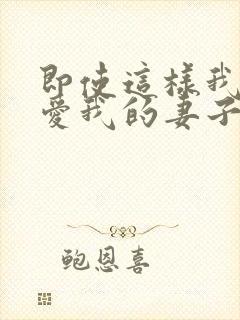 即使這樣我
愛我的妻子
鲍恩喜